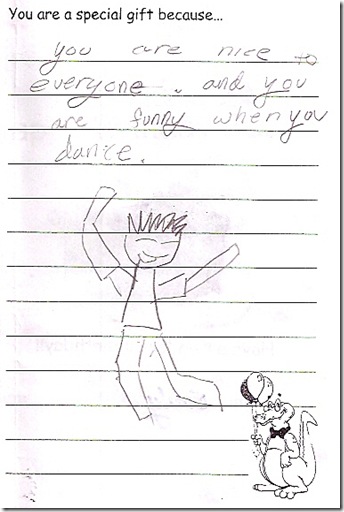 You are a special gift because...
you are nice to
everyone. and you
are funny when you
dance.